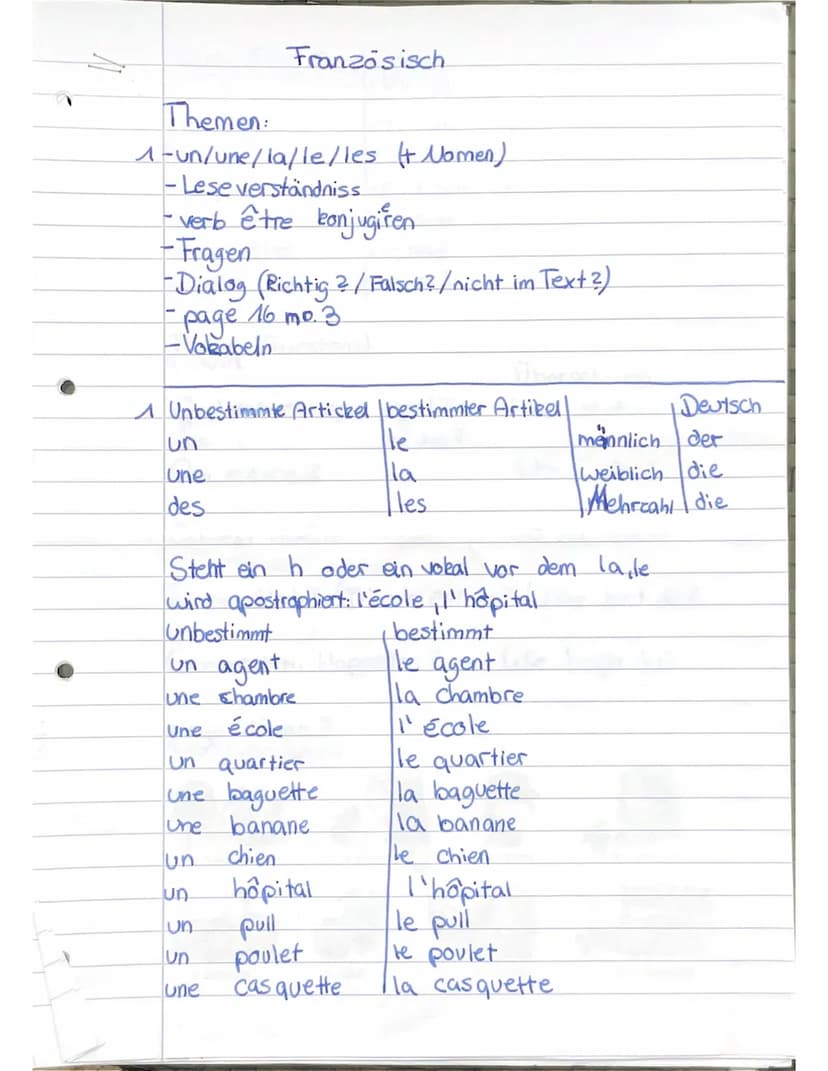 Französisch
Themen:
1 -un/une/la/le/les (+ Nomen)
- Leseverständniss
- verb être konjugieren
- Fragen
- Dialog (Richtig?/Falsch?/nicht im Text?)
- page 16 no.3
- Vokabeln
1 Unbestimmte Artickel | bestimmter Artikel | | Deutsch
un | le | männlich | der
une | la | weiblich | die
des | les | Mehrzahl | die
Steht ein h oder ein vokal vor dem la,le
wird apostrophiert: l'école, l'hôpital
unbestimmt | bestimmt
un agent | le agent
une chambre | la chambre
une école | l'école
un quartier | le quartier
une baguette | la baguette
une banane | la banane
un chien | le chien
un hôpital | l'hôpital
un pull | le pull
un poulet | le poulet
une casquette | la casquette